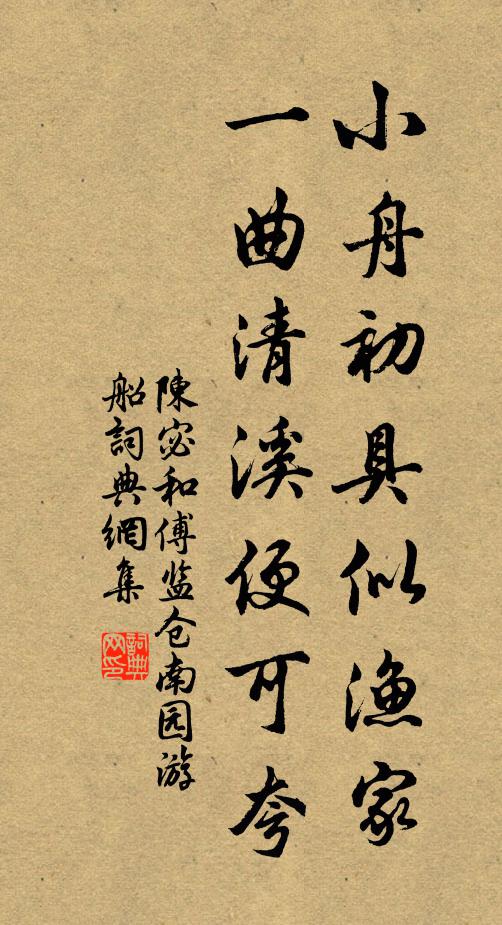 小舟初具似渔家
一曲清溪便可夸
陳宓和傅监仓南园游
船詞典網集
詞典网印